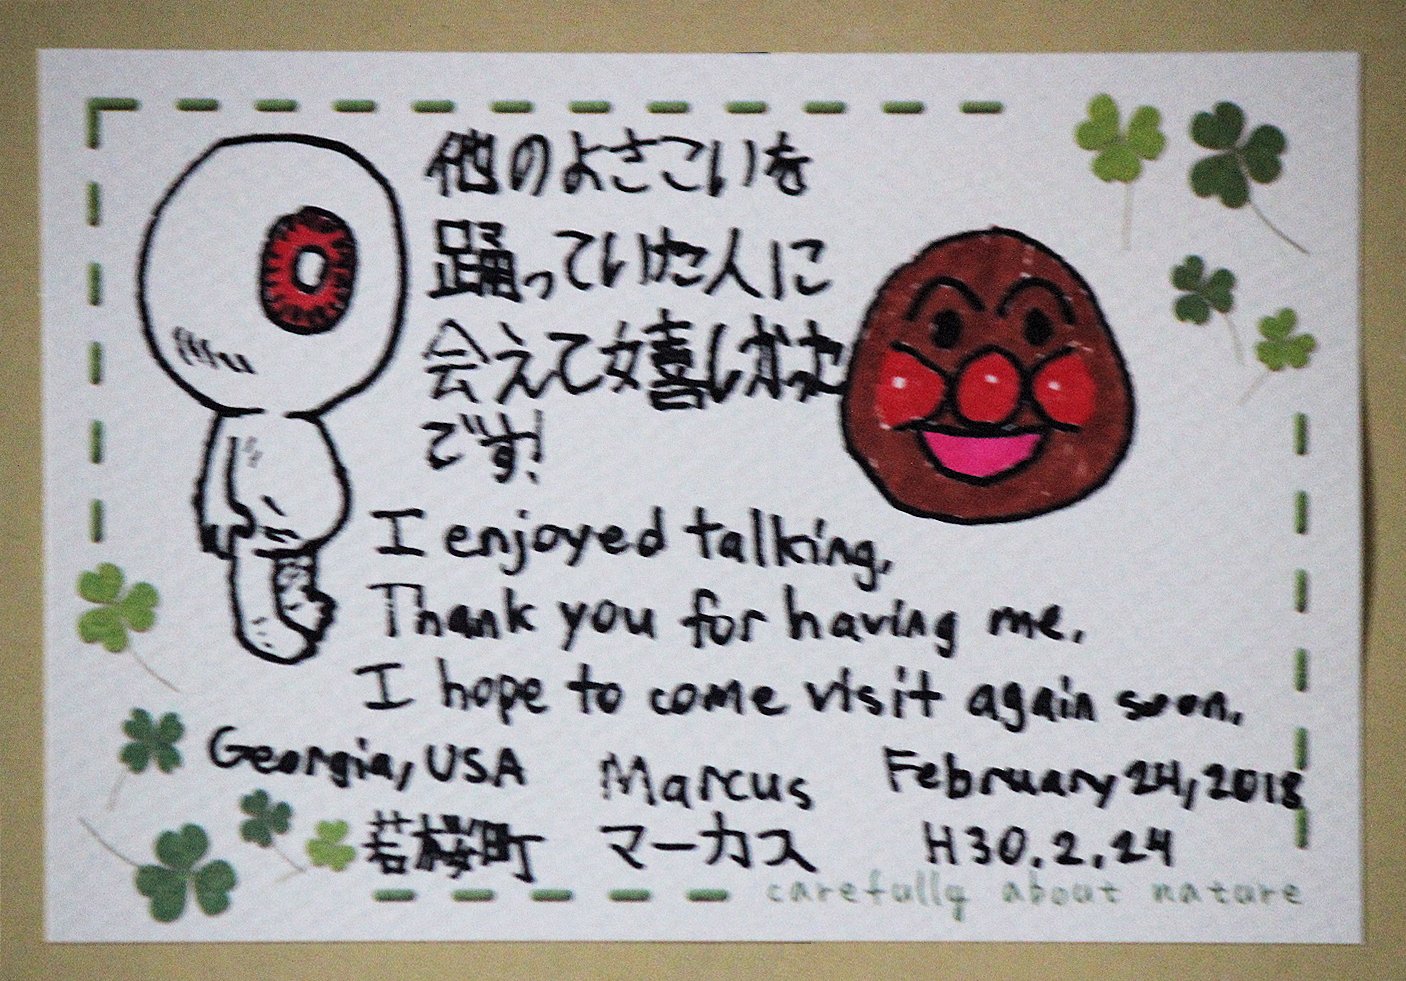 他のよさこいを
踊っていた人に
会えて嬉しかった
です!
I enjoyed talking,
Thank you for having me.
I hope to come visit again soon.
Georgia, USA Marcus February 24, 2018
若桜町 マーカス H30.2.24
carefully about nature